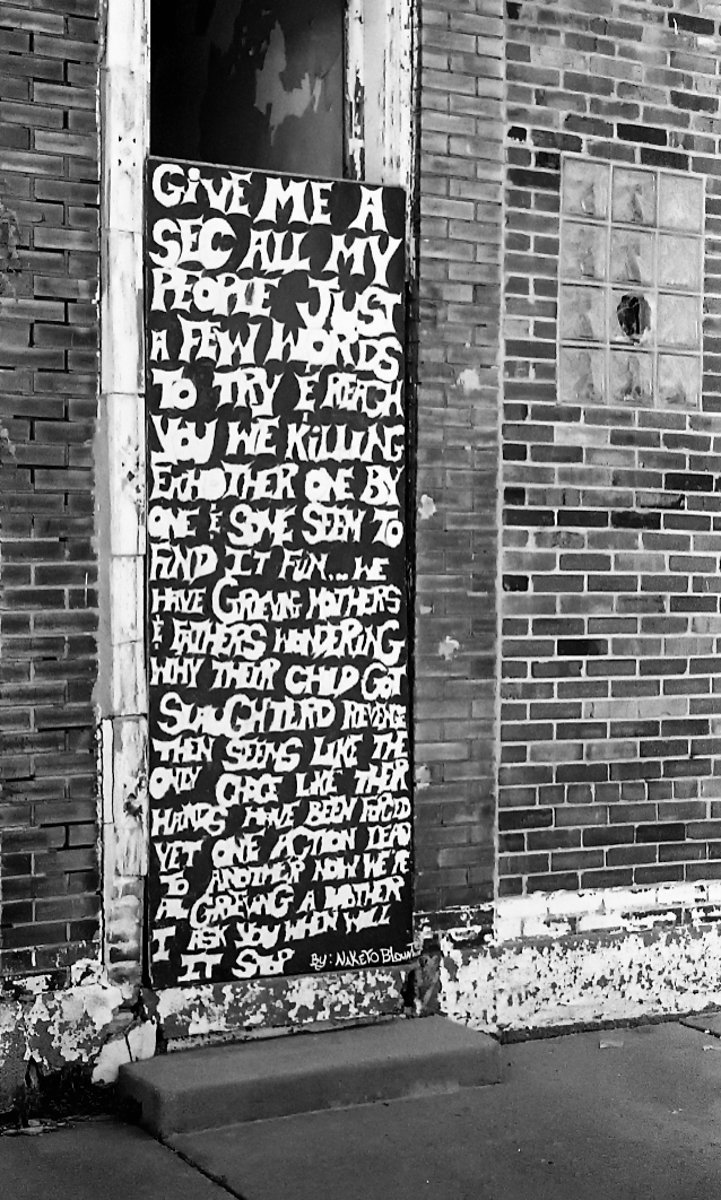 GiVE ME A
SEC ALL MY
PEOPLE JUST
A FEW WORDS
TO TRY & REACH
YOU WE KiLLiNG
EACHOTHER ONE BY
ONE & SOME SEEM TO
FIND IT FUN... WE
HAVE GRIEVING MOTHERS
& FATHERS WONDERING
WHY THEIR CHILD GOT
SLAUGHTERD REVENGE
THEN SEEMS LIKE THE
ONLY CHOICE LIKE THEIR
HANDS HAVE BEEN FORCED
YET ONE ACTION LEAD
TO ANOTHER NOW WE'RE
ALL GRIEVING A BROTHER
I ASK YOU WHEN WILL
IT STOP By: NAKEYO